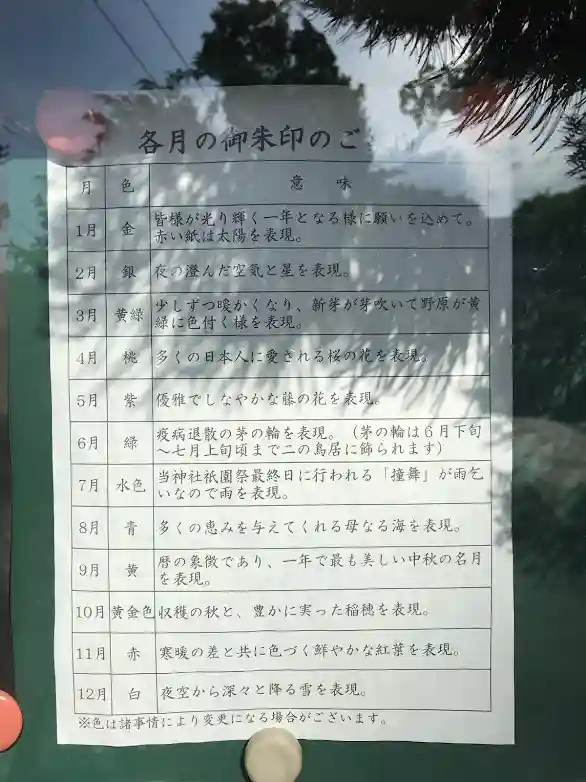 各月の御朱印のご
月 色 意味
1月 金 皆様が光り輝く一年となる様に願いを込めて。
赤い紙は太陽を表現。
2月 銀 夜の澄んだ空気と星を表現。
3月 黄緑 少しずつ暖かくなり、新芽が芽吹いて野原が黄
緑に色付く様を表現。
4月 桃 多くの日本人に愛される桜の花を表現。
5月 紫 優雅でしなやかな藤の花を表現。
6月 緑 疫病退散の茅の輪を表現。（茅の輪は６月下旬
～七月上旬頃まで二の鳥居に飾られます）
7月 水色 当神社祇園祭最終日に行われる「撞舞」が雨乞
いなので雨を表現。
8月 青 多くの恵みを与えてくれる母なる海を表現。
9月 黄 暦の象徴であり、一年で最も美しい中秋の名月
を表現。
10月 黄金色 収穫の秋と、豊かに実った稲穂を表現。
11月 赤 寒暖の差と共に色づく鮮やかな紅葉を表現。
12月 白 夜空から深々と降る雪を表現。
※色は諸事情により変更になる場合がございます。